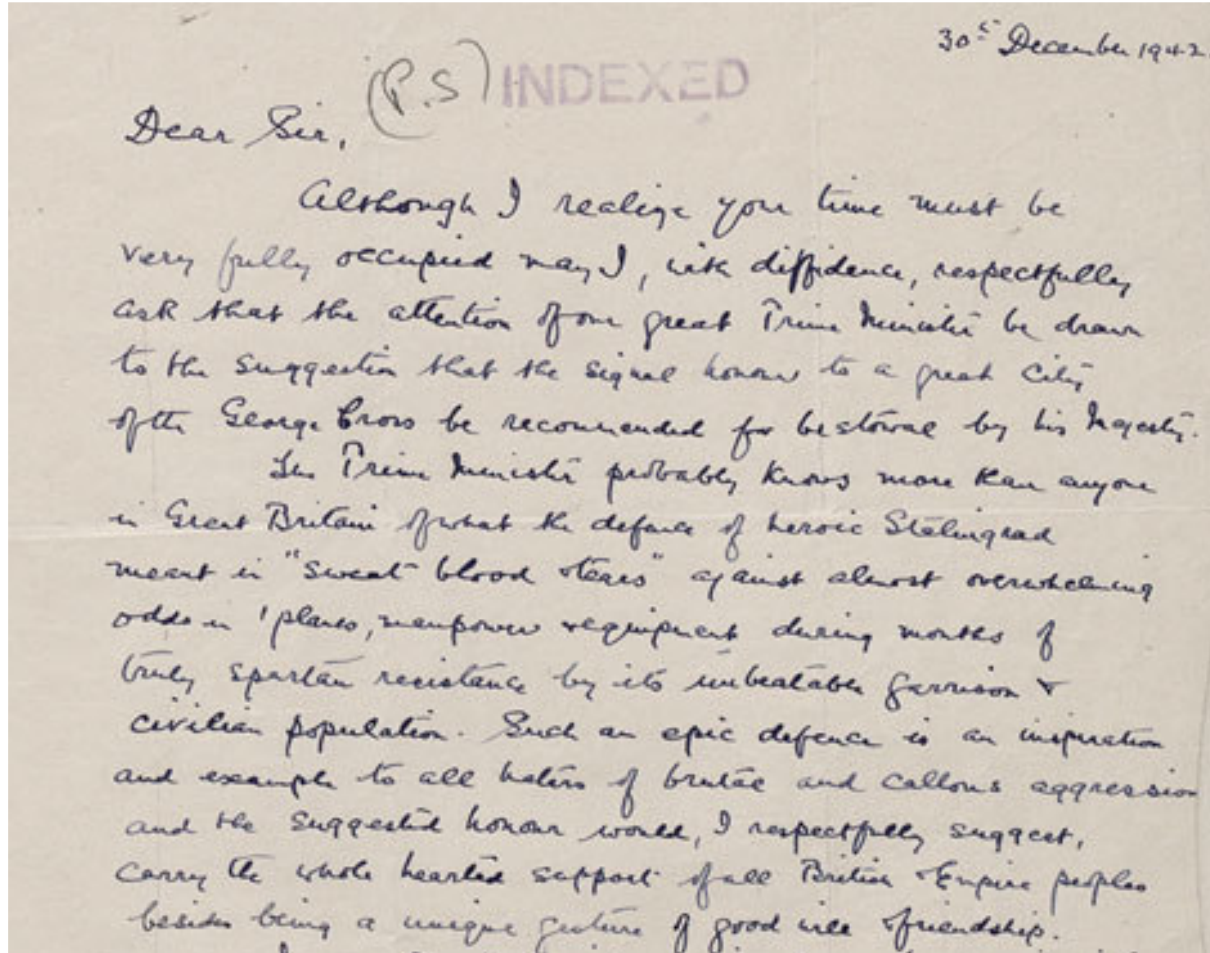 30th December 1942
(P.S) INDEXED
Dear Sir,
Although I realize your time must be
very fully occupied may I, with diffidence, respectfully
ask that the attention of our great Prime Minister be drawn
to the suggestion that the signal honour to a great City
of the George Cross be recommended for bestowal by his Majesty.
The Prime Minister probably knows more than anyone
in Great Britain of what the defence of heroic Stalingrad
meant in "sweat blood & tears" against almost overwhelming
odds in 'planes, manpower & equipment during months of
truly spartan resistance by its unbeatable garrison &
civilian population. Such an epic defence is an inspiration
and example to all haters of brutal and callous aggression
and the suggested honour would, I respectfully suggest,
carry the whole hearted support of all British & Empire peoples
besides being a unique gesture of good will & friendship.